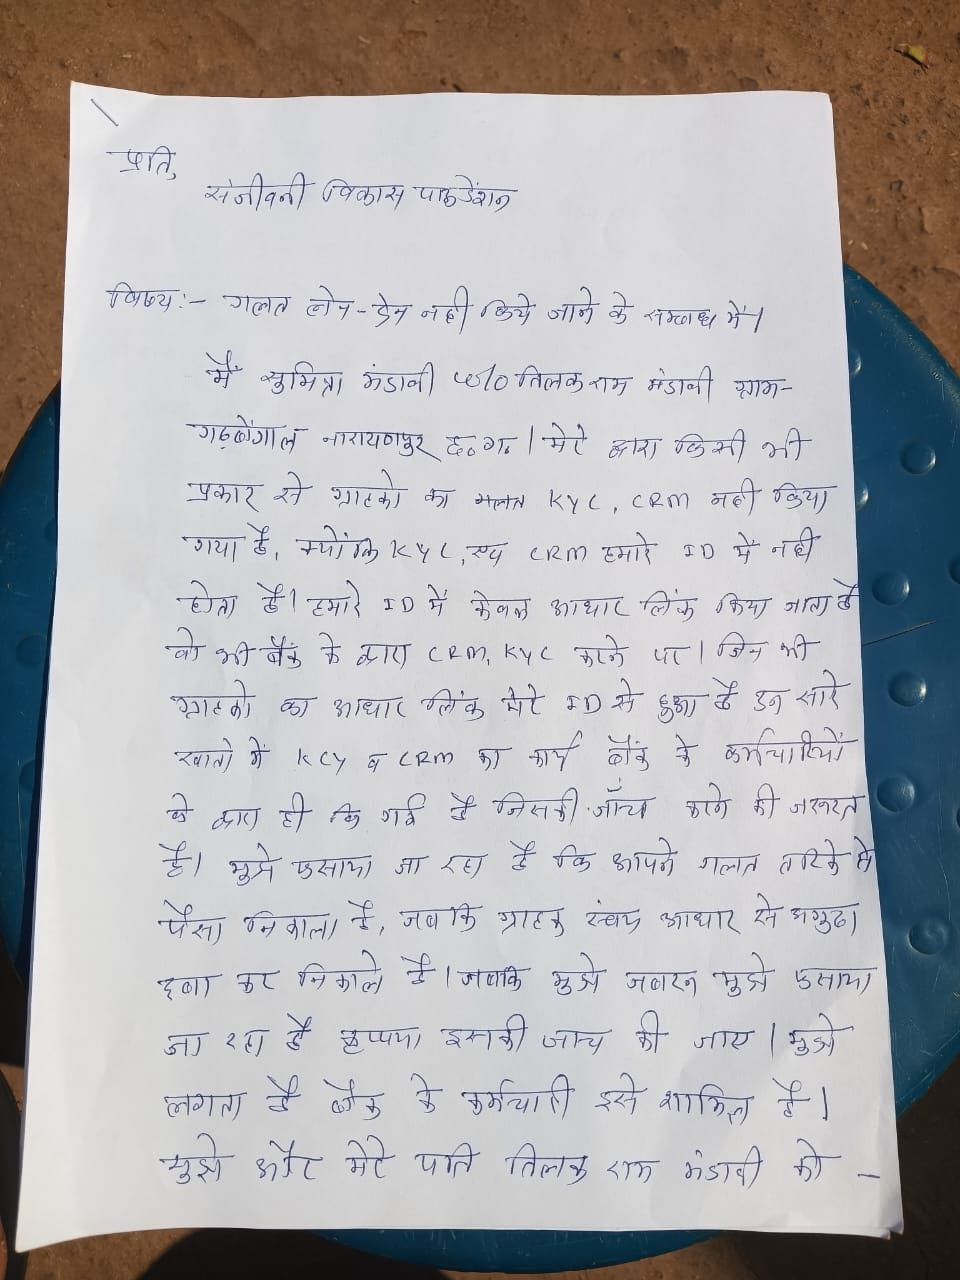 प्रति,
संजीवनी विकास फाऊंडेशन
विषय:- गलत लेन-देन नही किये जाने के सम्बन्ध में।
मैं सुमित्रा मंडावी w/o तिलक राम मंडावी ग्राम-
गढ़बेंगाल नारायणपुर छ.ग.। मेरे द्वारा किसी भी
प्रकार से ग्राहको का गलत KYC, CRM नही किया
गया है, क्योंकि KYC, एवं CRM हमारे ID में नही
होता है। हमारे ID में केवल आधार लिंक किया जाता है
वो भी बैंक के द्वारा CRM, KYC करने पर। जिन भी
ग्राहको का आधार लिंक मेरे ID से हुआ है उन सारे
खातो में KCY व CRM का कार्य बैंक के कर्मचारियों
के द्वारा ही कि गई है जिसकी जाँच करने की जरूरत
है। मुझे फसाया जा रहा है कि आपने गलत तरिके से
पैसा निकाला है, जबकि ग्राहक स्वंय आधार से अगुठा
दबा कर निकाले है। जबकि मुझे जबरन मुझे फसाया
जा रहा है कृप्पया इसकी जाच की जाए। मुझे
लगता है बैंक के कर्मचारी इसे शामिल है।
मुझे और मेरे पति तिलक राम मंडावी को -